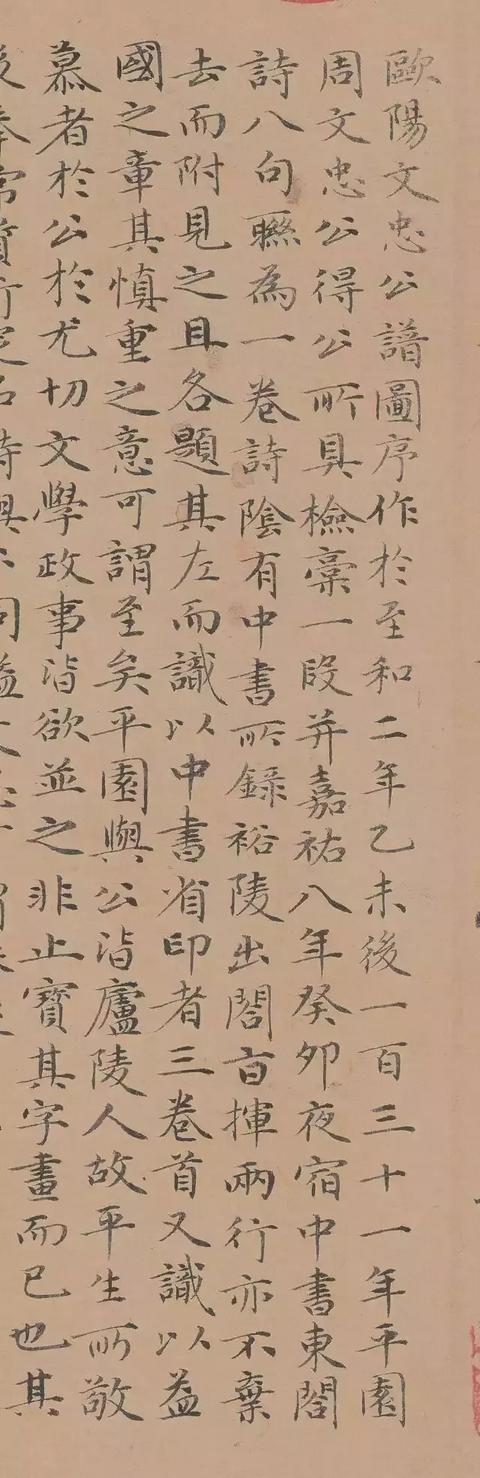 歐陽文忠公譜圖序作於至和二年乙未後一百三十一年平園
周文忠公得公所具檢稾一段并嘉祐八年癸卯夜宿中書東閤
詩八句聮為一卷詩陰有中書所錄裕陵出閤旨揮兩行亦不棄
去而附見之且各題其左而識以中書省印者三卷首又識以益
國之章其慎重之意可謂至矣平園與公皆廬陵人故平生所敬
慕者於公於尤切文學政事皆欲並之非止寶其字畫而已也其